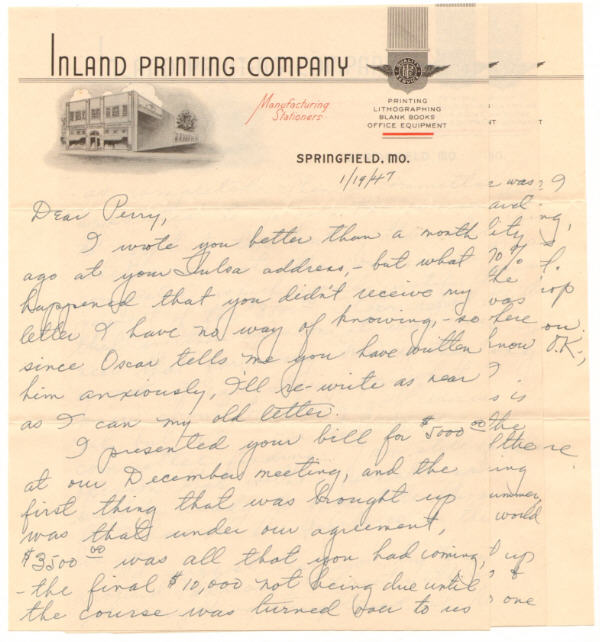 INLAND PRINTING COMPANY
Manufacturing
Stationers
QUALITY
SERVICE
PRINTING
LITHOGRAPHING
BLANK BOOKS
OFFICE EQUIPMENT
SPRINGFIELD, MO.
1/19/47
Dear Perry,
I wrote you better than a month
ago at your Tulsa address,- but what
happened that you didn't receive my
letter I have no way of knowing,- so
since Oscar tells me you have written
him anxiously, I'll re-write as near
as I can my old letter.
I presented your bill for $5000 00
at our December meeting, and the
first thing that was brought up
was that under our agreement,
$3500 00 was all that you had coming,
- the final $10,000 not being due until
the course was turned over to us
was
70%
the
was
here
know
is
the
world
up
one
I
on
O.K.,
there